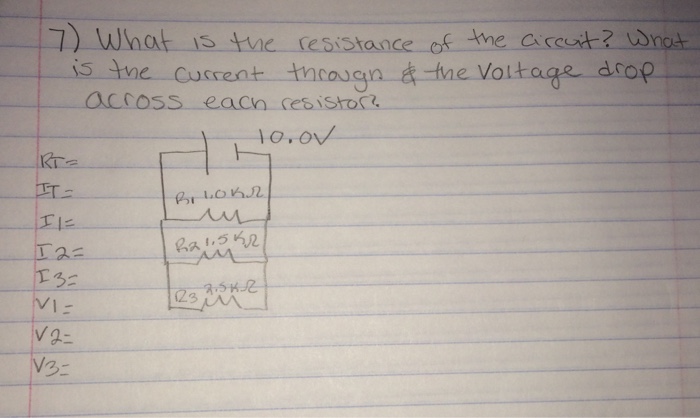 7) What is the resistance of the circuit? What
is the current through & the voltage drop
across each resistor?
10.0V
RT=
IT=
I1=
I2=
I3=
V1=
V2=
V3=
R1 1.0KΩ
R2 1.5KΩ
R3 2.5KΩ